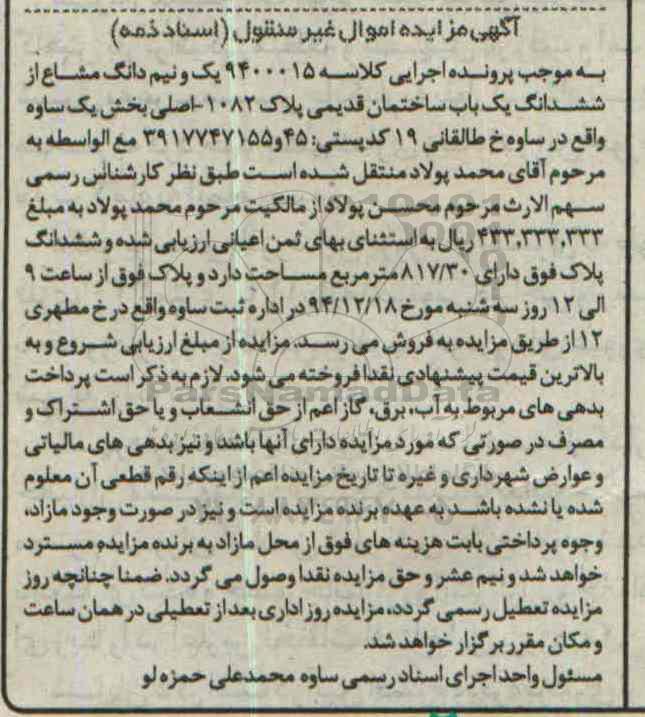 آگهی مزایده اموال غیر منقول (اسناد ذمه)
به موجب پرونده اجرایی کلاسه ۹۴۰۰۰۱۵ یک و نیم دانگ مشاع از
ششدانگ یک باب ساختمان قدیمی پلاک ۱۰۸۲-اصلی بخش یک ساوه
واقع در ساوه خ طالقانی ۱۹ کدپستی: ۴۵و۳۹۱۷۷۴۷۱۵۵ مع الواسطه به
مرحوم آقای محمد پولاد منتقل شده است طبق نظر کارشناس رسمی
سهم الارث مرحوم محسن پولاد از مالکیت مرحوم محمد پولاد به مبلغ
۴۳۳,۳۳۳,۳۳۳ ریال به استثنای بهای ثمن اعیانی ارزیابی شده و ششدانگ
پلاک فوق دارای ۸۱۷/۳۰ متر مربع مساحت دارد و پلاک فوق از ساعت ۹
الی ۱۲ روز سه شنبه مورخ ۹۴/۱۲/۱۸ در اداره ثبت ساوه واقع در خ مطهری
۱۲ از طریق مزایده به فروش می رسد. مزایده از مبلغ ارزیابی شروع و به
بالاترین قیمت پیشنهادی نقدا فروخته می شود. لازم به ذکر است پرداخت
بدهی های مربوط به آب، برق، گاز اعم از حق انشعاب و یا حق اشتراک و
مصرف در صورتی که مورد مزایده دارای آنها باشد و نیز بدهی های مالیاتی
و عوارض شهرداری و غیره تا تاریخ مزایده اعم از اینکه رقم قطعی آن معلوم
شده یا نشده باشد به عهده برنده مزایده است و نیز در صورت وجود مازاد،
وجوه پرداختی بابت هزینه های فوق از محل مازاد به برنده مزایده مسترد
خواهد شد و نیم عشر و حق مزایده نقدا وصول می گردد. ضمنا چنانچه روز
مزایده تعطیل رسمی گردد، مزایده روز اداری بعد از تعطیلی در همان ساعت
و مکان مقرر برگزار خواهد شد.
مسئول واحد اجرای اسناد رسمی ساوه محمدعلی حمزه لو
ParsNamadData